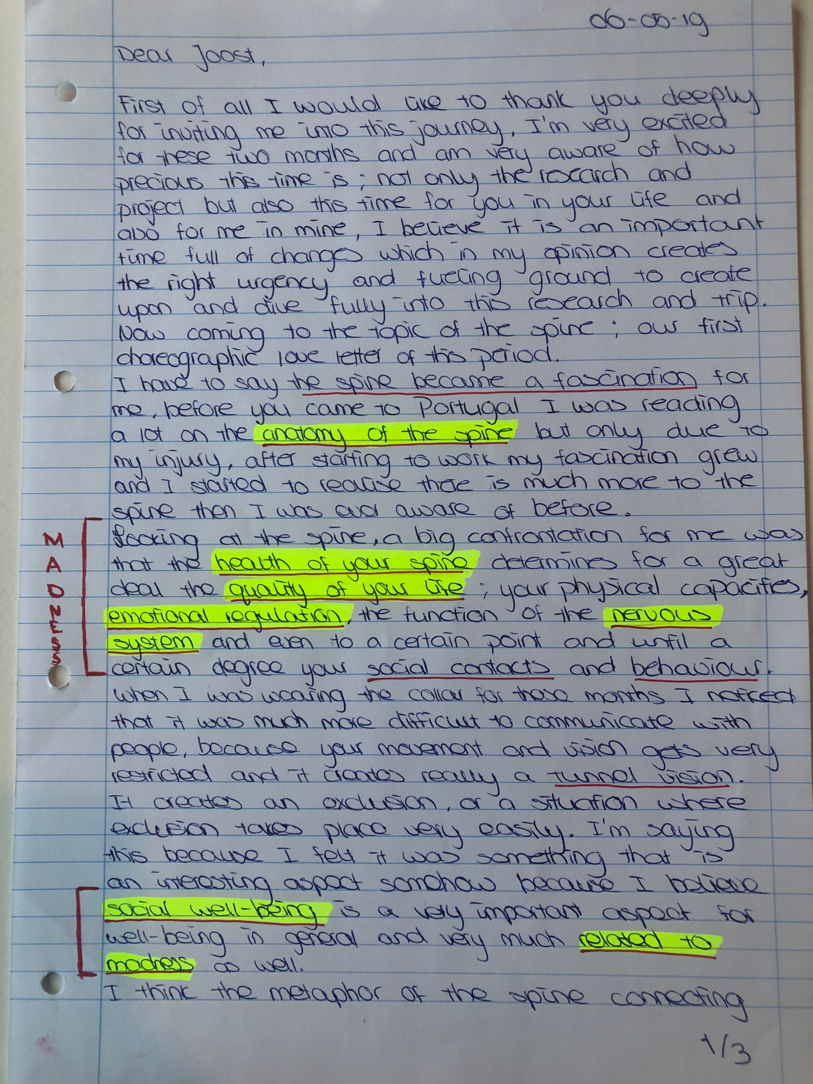 06-05-19
Dear Joost,
First of all I would like to thank you deeply
for inviting me into this journey, I'm very excited
for these two months and am very aware of how
precious this time is; not only the research and
project but also this time for you in your life and
also for me in mine, I believe it is an important
time full of changes which in my opinion creates
the right urgency and fueling ground to create
upon and dive fully into this research and trip.
Now coming to the topic of the spine; our first
choreographic love letter of this period.
I have to say the spine became a fascination for
me, before you came to Portugal I was reading
a lot on the anatomy of the spine but only due to
my injury, after starting to work my fascination grew
and I started to realise there is much more to the
spine then I was ever aware of before.
MADNESS
Looking at the spine, a big confrontation for me was
that the health of your spine determines for a great
deal the quality of your life; your physical capacities,
emotional regulation, the function of the nervous
system and even to a certain point and untill a
certain degree your social contacts and behaviour.
When I was wearing the collar for those months I noticed
that it was much more difficult to communicate with
people, because your movement and vision gets very
restricted and it creates really a tunnel vision.
It creates an exclusion, or a situation where
exclusion takes place very easily. I'm saying
this because I felt it was something that is
an interesting aspect somehow because I believe
social well-being is a very important aspect for
well-being in general and very much related to
madness as well.
I think the metaphor of the spine connecting
1/3